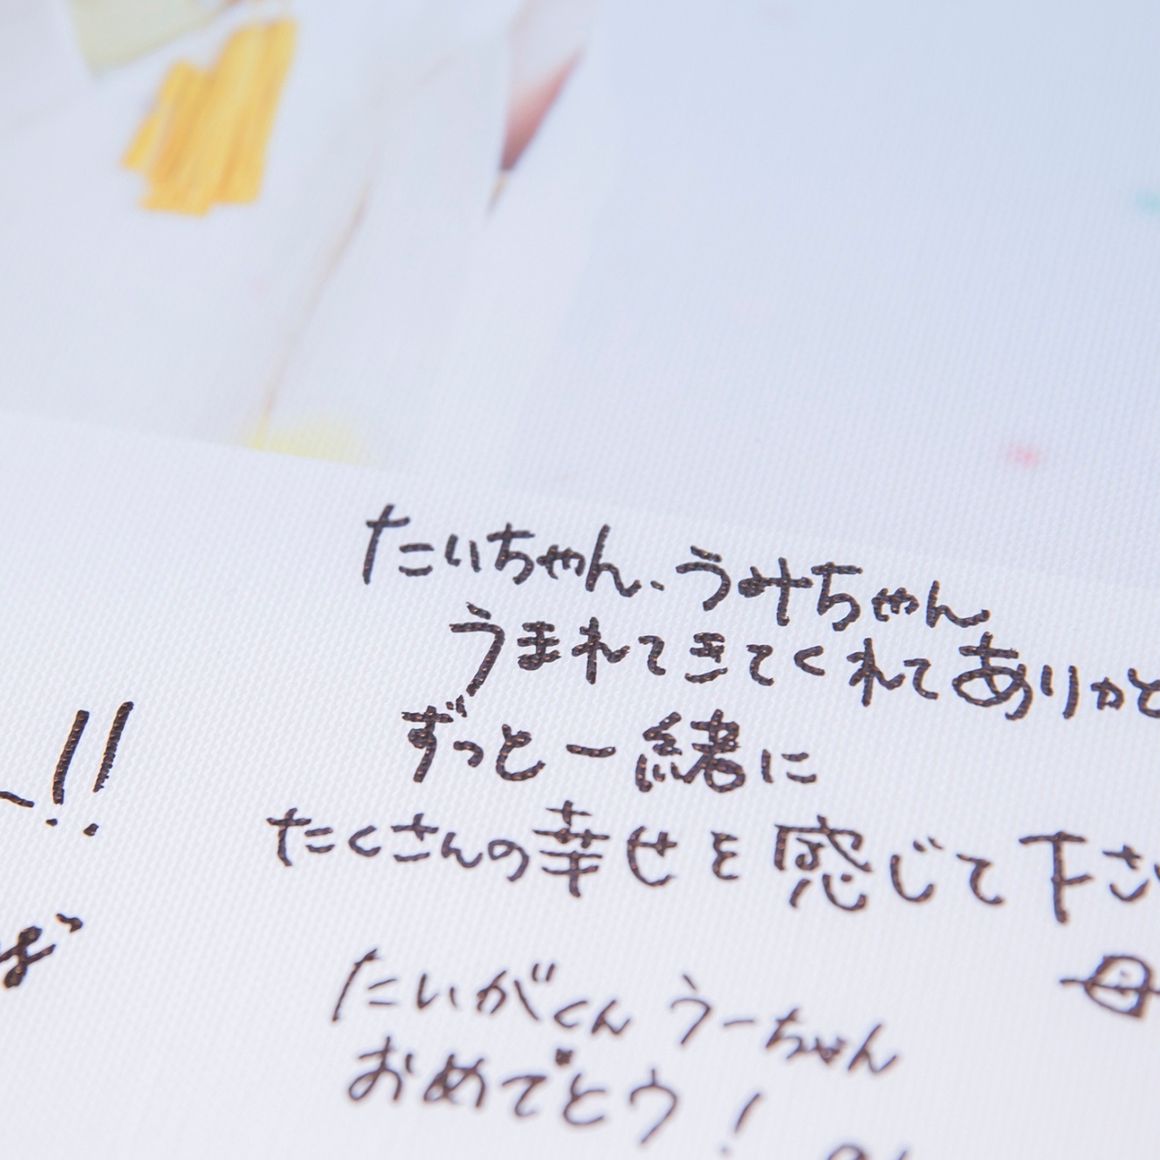 たいちゃん、うみちゃん
うまれてきてくれてありがと
ずっと一緒に
たくさんの幸せを感じて下さ
母
!!
たいがくん うーちゃん
おめでとう!